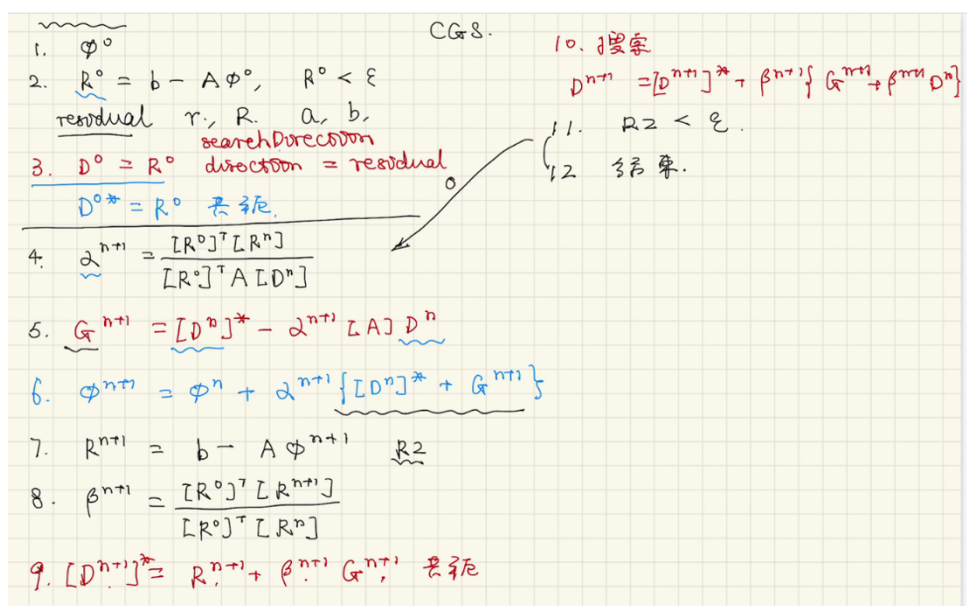 CGS.
1. Φ⁰
2. R⁰ = b - AΦ⁰, R⁰ < ε
residual r, R. a, b,
searchDirection
3. D⁰ = R⁰ direction = residual
D⁰* = R⁰ 共轭.
4. α^{n+1} = [R⁰]ᵀ[Rⁿ] / [R⁰]ᵀA[Dⁿ]
5. G^{n+1} = [Dⁿ]* - α^{n+1}[A]Dⁿ
6. Φ^{n+1} = Φⁿ + α^{n+1}{[Dⁿ]* + G^{n+1}}
7. R^{n+1} = b - AΦ^{n+1} R2
8. β^{n+1} = [R⁰]ᵀ[R^{n+1}] / [R⁰]ᵀ[Rⁿ]
9. [D^{n+1}]* = R^{n+1} + β^{n+1}G^{n+1}, 共轭
10. 搜索
D^{n+1} = [D^{n+1}]* + β^{n+1}{G^{n+1} + β^{n+1}Dⁿ}
11. R2 < ε.
12 结束.